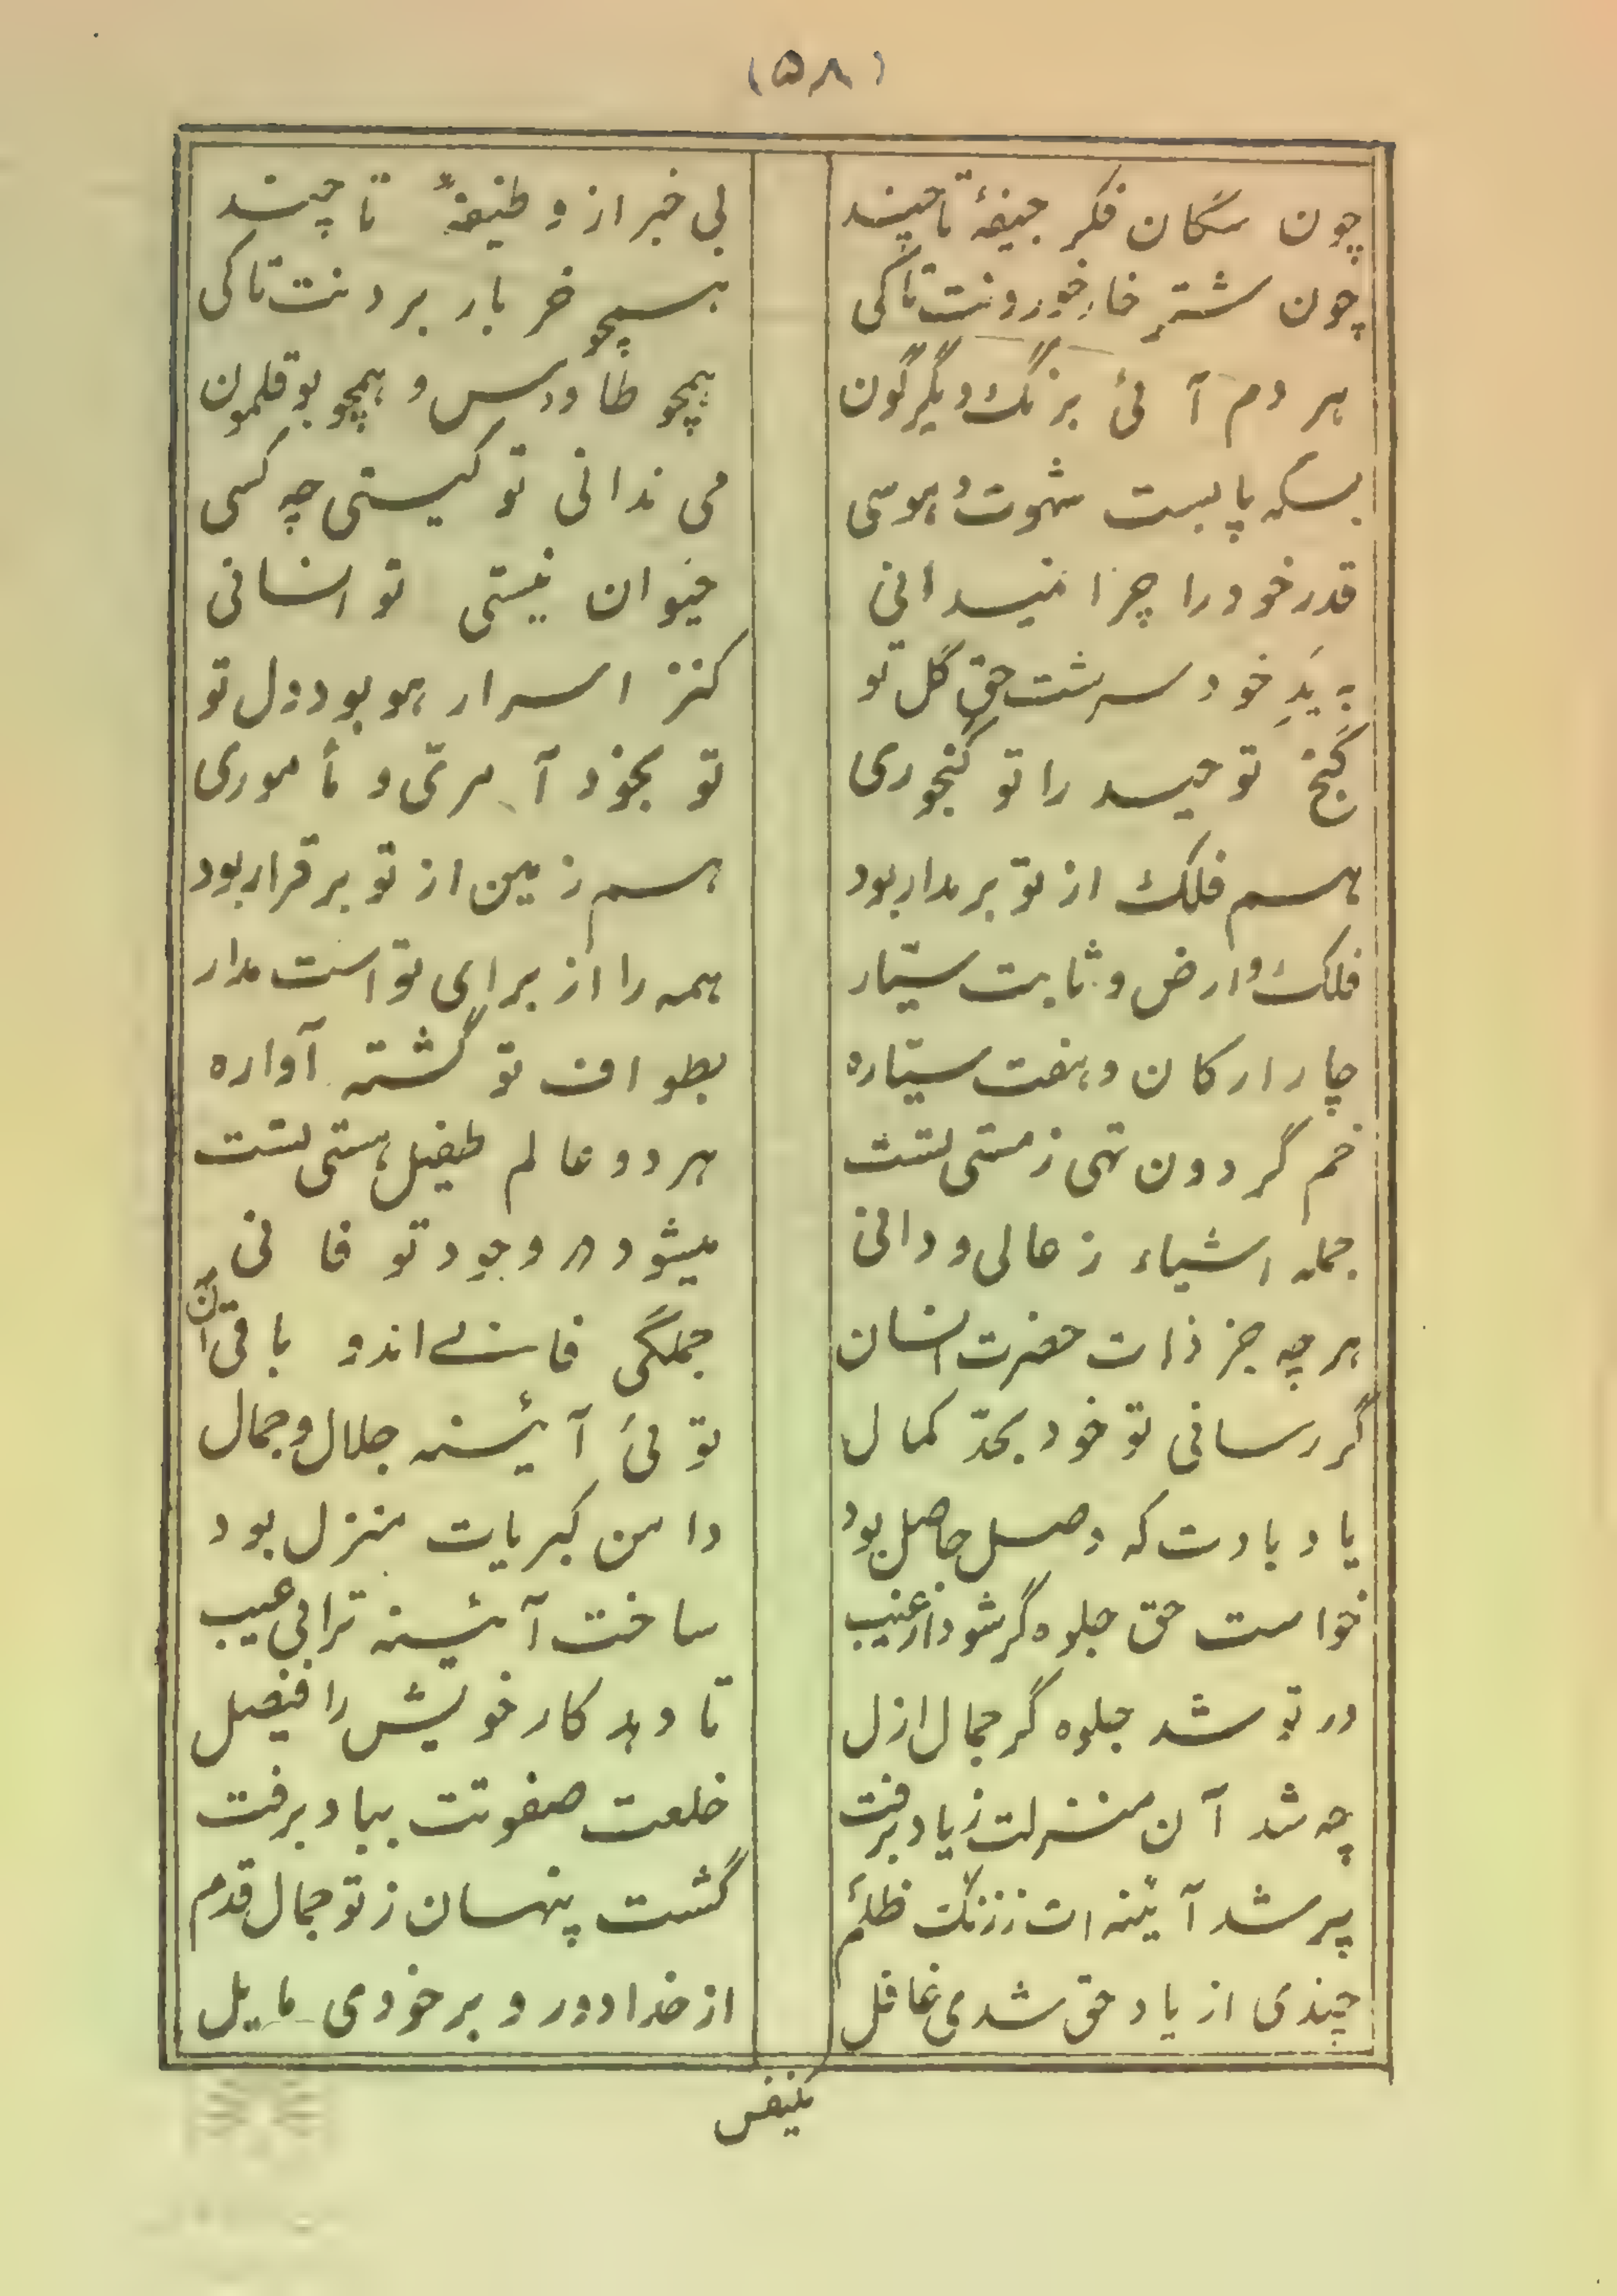 (۵۸)
چون سگان فکر جیفهٔ تا چند    بی خبر از وظیفهٔ تا چند
چون شتر خار خوردنت تا کی    همچو خر بار بردنت تا کی
هر دم آئی برنگ دیگرگون    همچو طاوس و همچو بوقلمون
بسکه پابست شهوت و هوسی    می ندانی تو کیستی چه کسی
قدر خود را چرا نمیدانی    حیوان نیستی تو انسانی
به یَدِ خود سرشت حق گل تو    کنز اسرار هو بود دل تو
گنج توحید را تو گنجوری    تو بخود آمری و مأموری
هم فلک از تو بر مدار بود    هم زمین از تو برقرار بود
فلک و ارض و ثابت سیّار    همه را از برای تو است مدار
چار ارکان و هفت سیّاره    بطواف تو گشته آواره
خم گردون تهی ز مستی تست    هر دو عالم طفیل هستی تست
جمله اشیاء ز عالی و دانی    میشود در وجود تو فانی
هر چه جز ذات حضرت انسان    جملگی فانی اند و باقی آن
گر رسانی تو خود بحدّ کمال    توئی آئینه جلال و جمال
یاد بادت که وصل حاصل بود    دامن کبریات منزل بود
خواست حق جلوه گر شود از غیب    ساخت آئینه ترا بی عیب
در تو شد جلوه گر جمال ازل    تا دهد کار خویش را فیصل
چه شد آن منزلت ز یاد برفت    خلعت صفوتت بباد برفت
پر شد آئینه ات ز زنگ ظلم    گشت پنهان ز تو جمال قدم
چندی از یاد حق شدی غافل    از خدا دور و بر خودی مایل
یکنفس